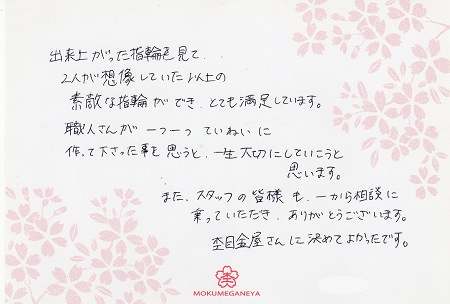 出来上がった指輪を見て、
2人が想像していた以上の
素敵な指輪ができ、とても満足しています。
職人さんが一つ一つていねいに
作って下さった事を思うと、一生大切にしていこうと
思います。
また、スタッフの皆様も、一から相談に
乗っていただき、ありがとうございます。
杢目金屋さんに決めてよかったです。
MOKUMEGANEYA